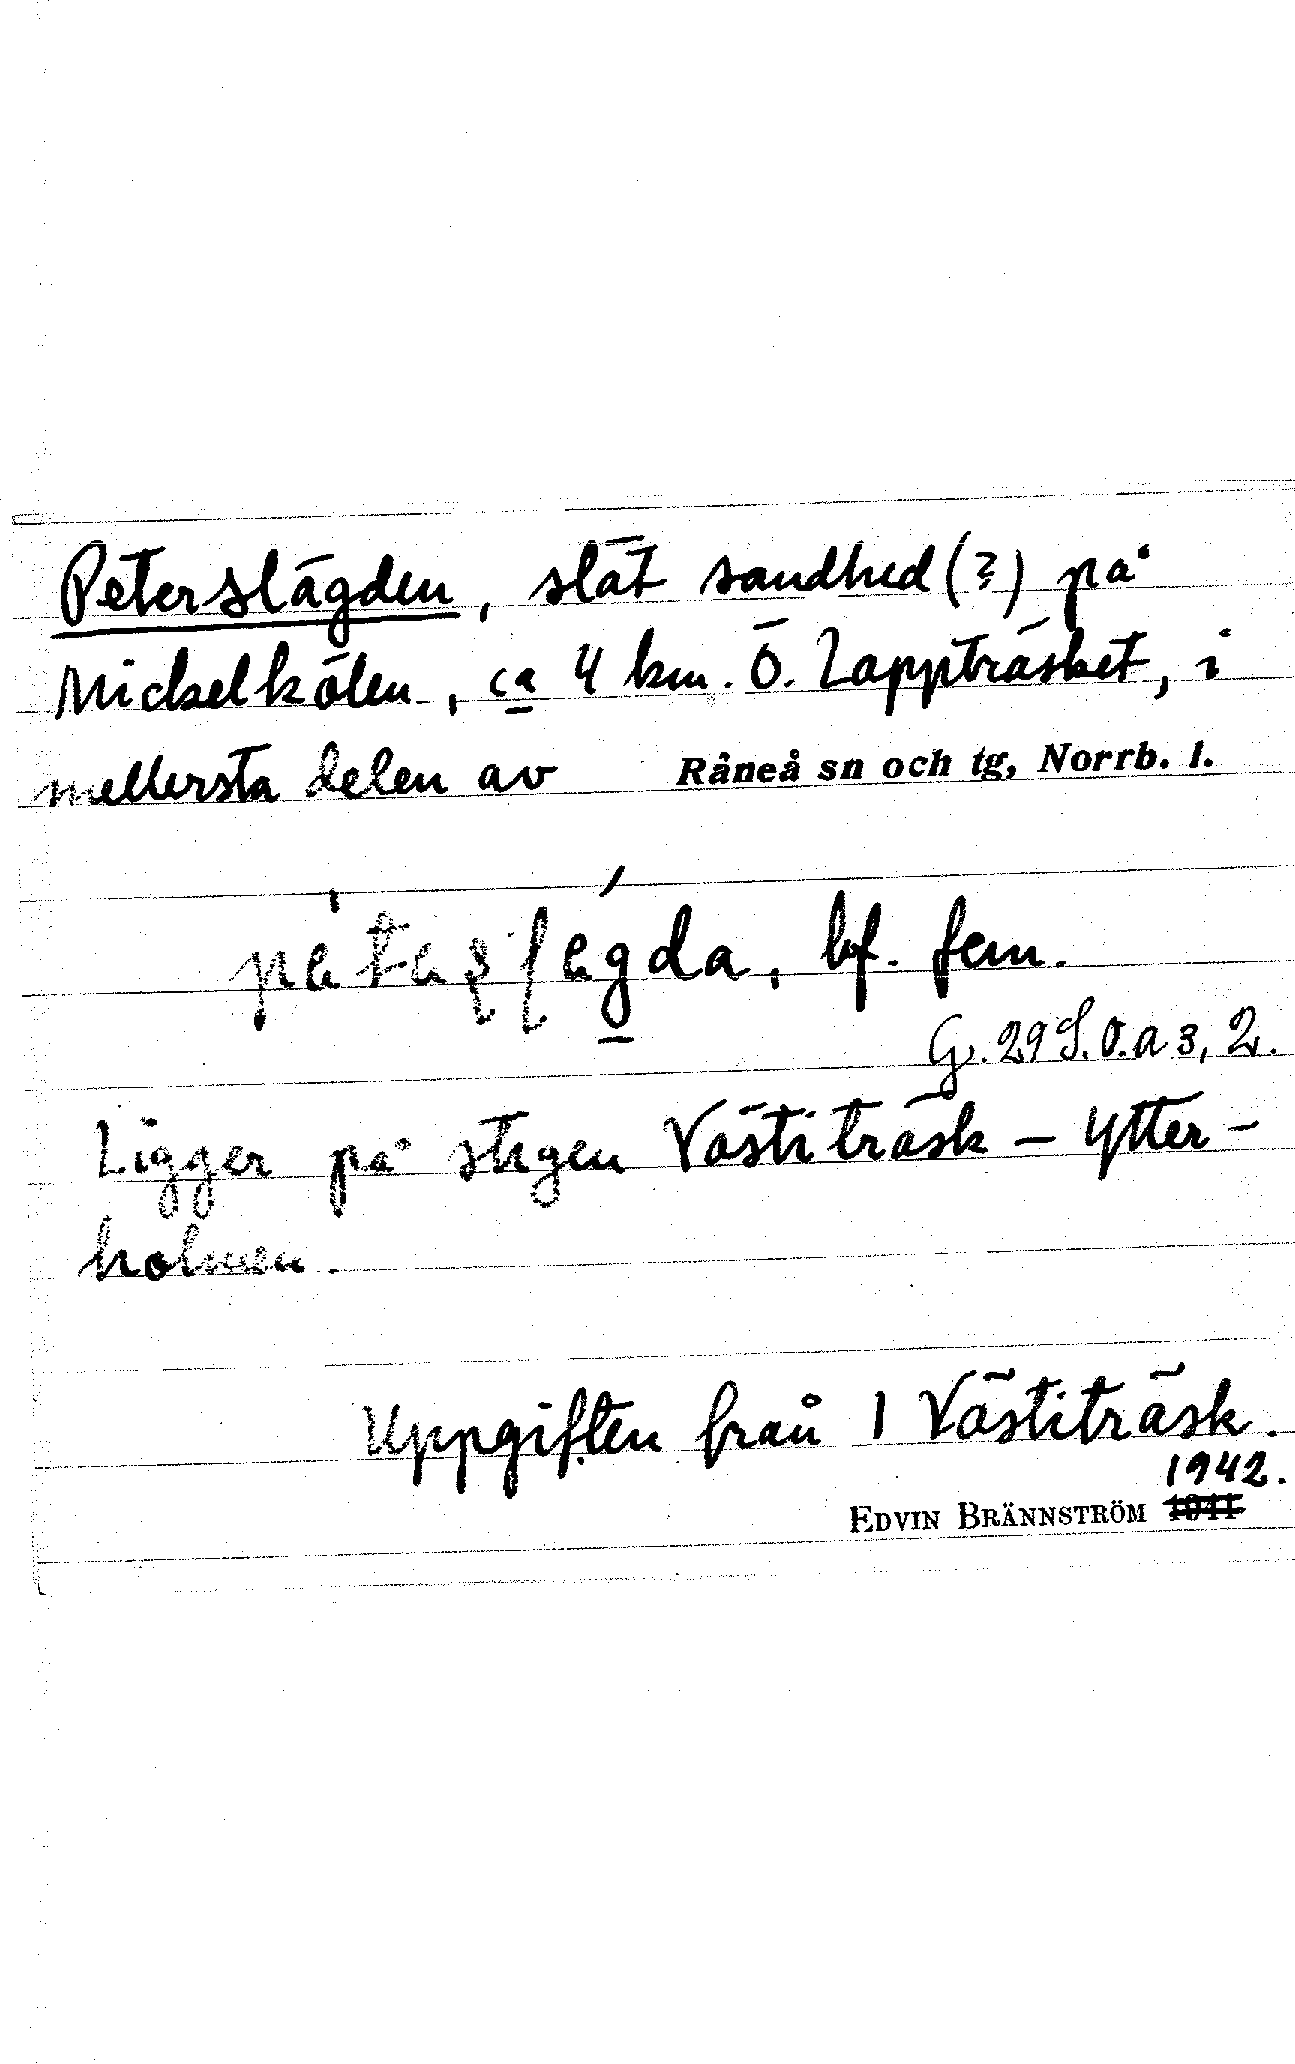 Peterslägden, slät sandhed(?) på
Mickelkölen, ca 4 km. Ö. Lappträsket, i
mellersta delen av Råneå sn och tg, Norrb. l.
bf. fem.
G. 29 S.O.a 3, 2.
Ligger på stigen Västiträsk – Ytter-
holmen.
Uppgiften från 1 Västiträsk.
1942.
EDVIN BRÄNNSTRÖM 1941